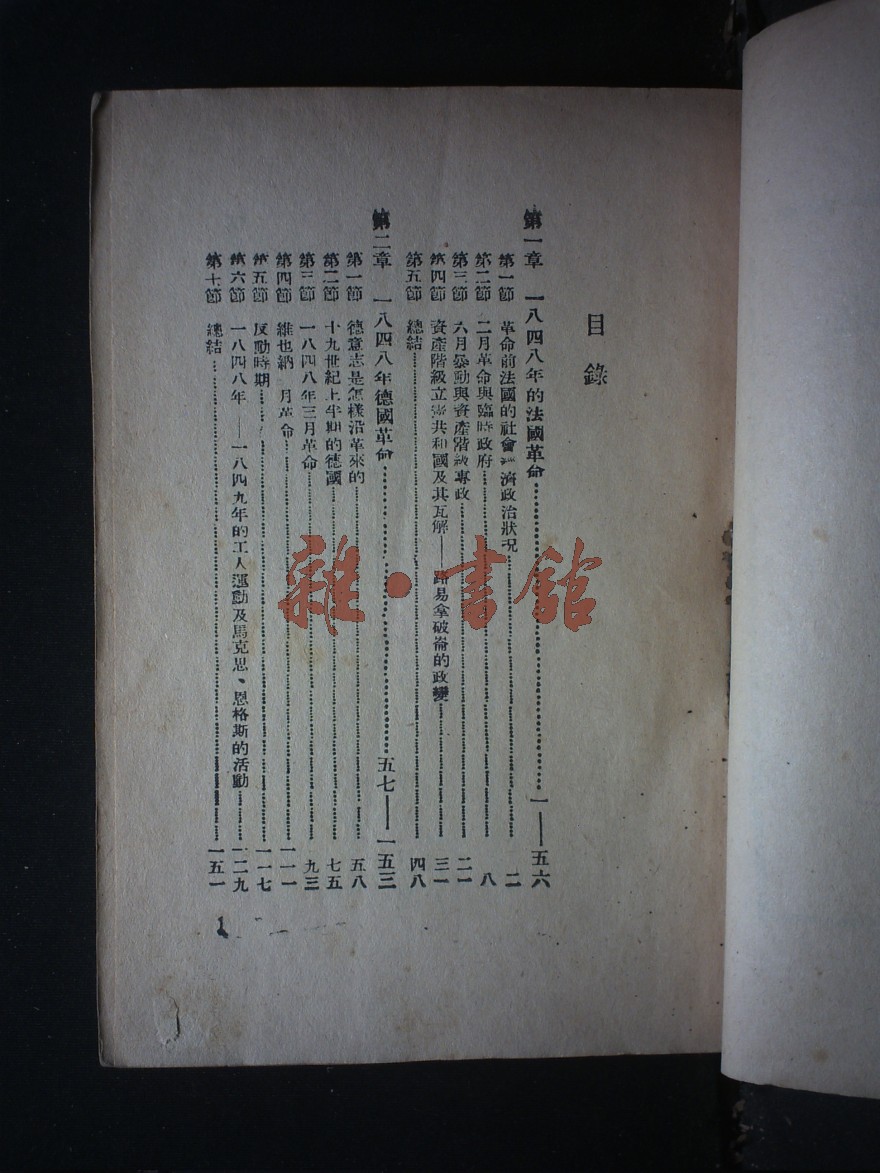 目錄
第一章 一八四八年的法國革命 一——五六
第一節 革命前法國的社會經濟政治狀況 二
第二節 二月革命與臨時政府 八
第三節 六月暴動與資產階級專政 二一
第四節 資產階級立憲共和國及其瓦解——路易拿破崙的政變 三一
第五節 總結 四八
第二章 一八四八年德國革命 五七——一五三
第一節 德意志是怎樣沿革來的 五八
第二節 十九世紀上半期的德國 七五
第三節 一八四八年三月革命 九三
第四節 維也納 月革命 一一一
第五節 反動時期 一一七
第六節 一八四八年——一八四九年的工人運動及馬克思、恩格斯的活動 一二九
第七節 總結 一五一
雜·書館